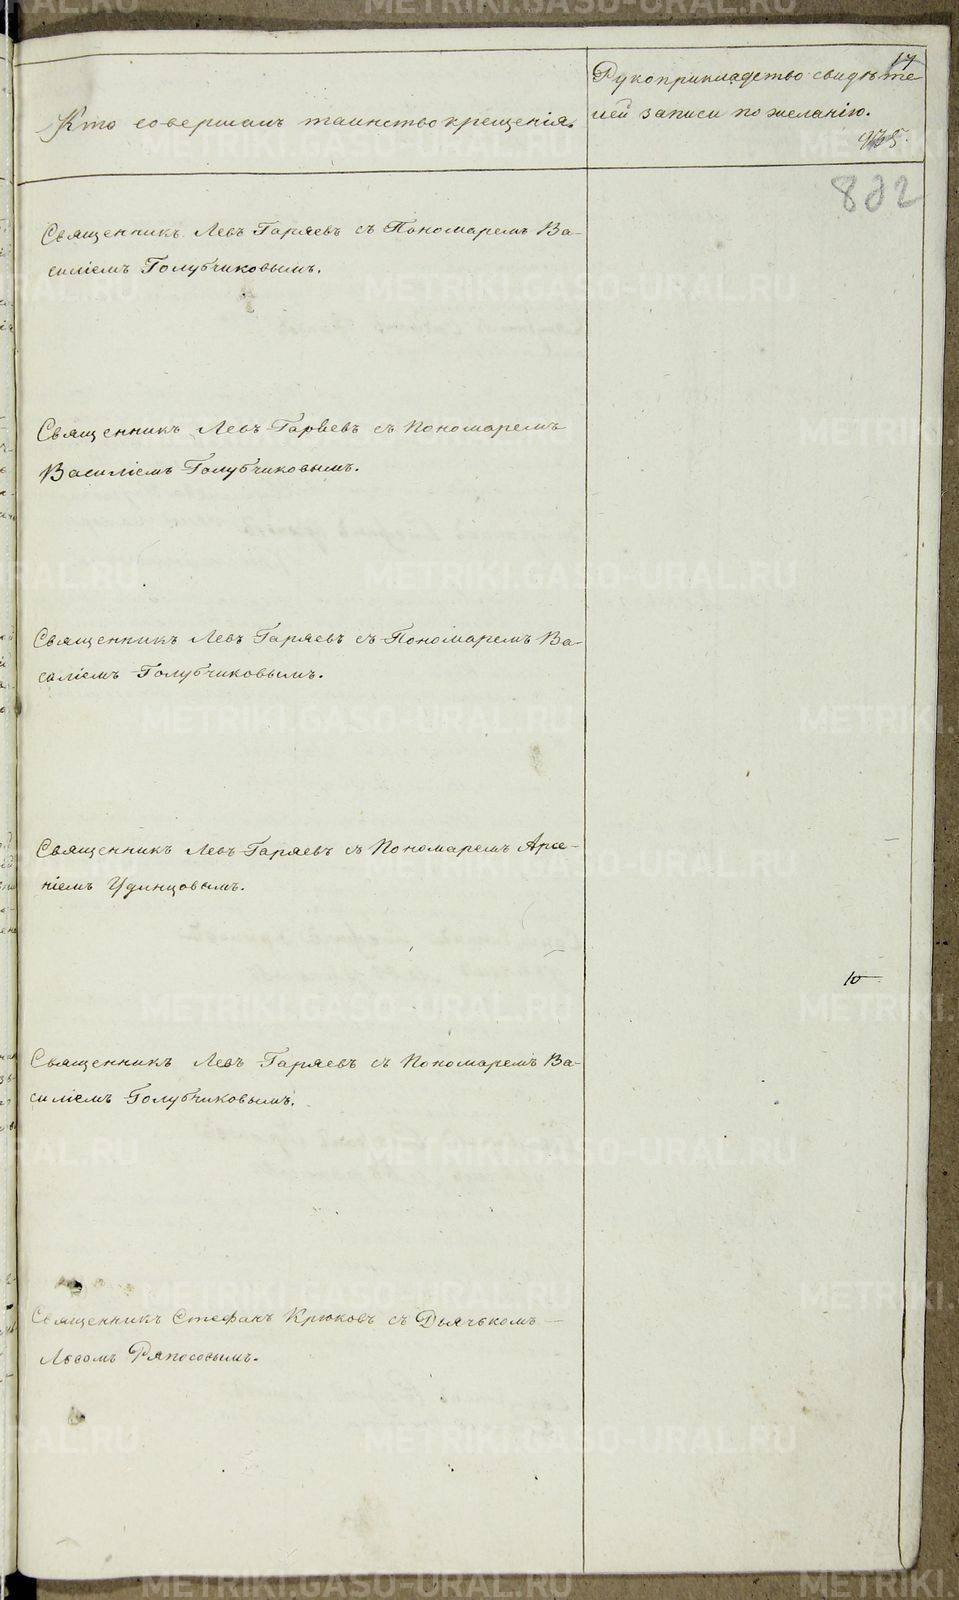 17
Кто совершалъ таинство крещенія.
Рукоприкладство свидѣте
лей записи по желанію.
882
Священникъ Левъ Гаряевъ съ Пономаремъ Ва-
силіемъ Голубчиковымъ.
Священникъ Левъ Гаряевъ съ Пономаремъ
Василіемъ Голубчиковымъ.
Священникъ Левъ Гаряевъ съ Пономаремъ Ва-
силіемъ Голубчиковымъ.
Священникъ Левъ Гаряевъ съ Пономаремъ Арсе-
ніемъ Удинцовымъ.
10
Священникъ Левъ Гаряевъ съ Пономаремъ Ва-
силіемъ Голубчиковымъ.
Священникъ Стефанъ Крюковъ съ Дьячькомъ
Львомъ Ряпосовымъ.
METRIKI.GASO-URAL.RU